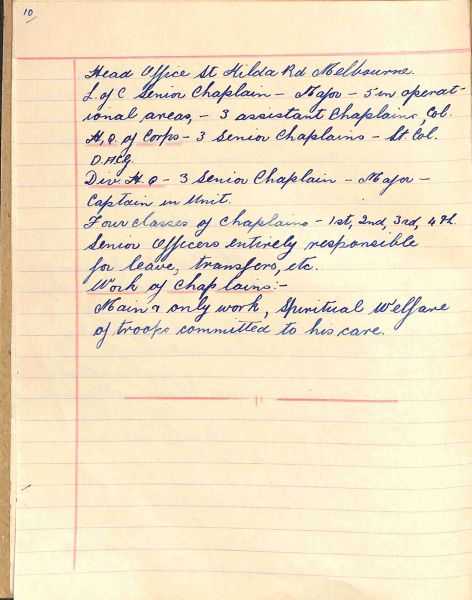 10
Head Office St Kilda Rd Melbourne.
L. of C Senior Chaplain - Major - 5 in operat-
ional areas, - 3 assistant Chaplains, Col.
H.Q. of Corps - 3 Senior Chaplains - Lt. Col.
D.A.G.
Div. H.Q - 3 Senior Chaplain - Major -
Captain in Unit.
Four classes of Chaplains - 1st, 2nd, 3rd, 4th.
Senior Officers entirely responsible
for leave, transfers, etc.
Work of Chaplains:-
Main & only work, Spiritual Welfare
of troops committed to his care.